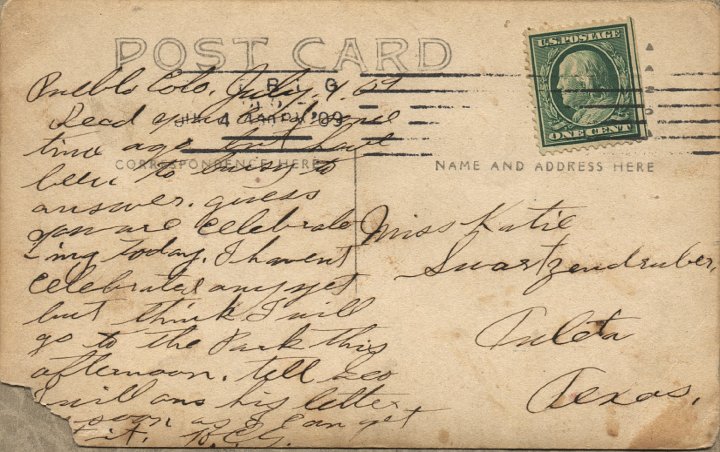 POST CARD
Pueblo Colo, July 4, 09
B. G
Read your card some
4 '09
time ago but have
CORRESPONDENCE HERE
been to buisy to
answer. guess
you are celebrate
ing today. I havent
celebrated any yet
but think I will
go to the Park this
afternoon. tell
I will ans his letter
soon as I can get
it.
U.S. POSTAGE
ONE CENT
NAME AND ADDRESS HERE
Miss Katie
Swartzendruber,
Tuleta
Texas,